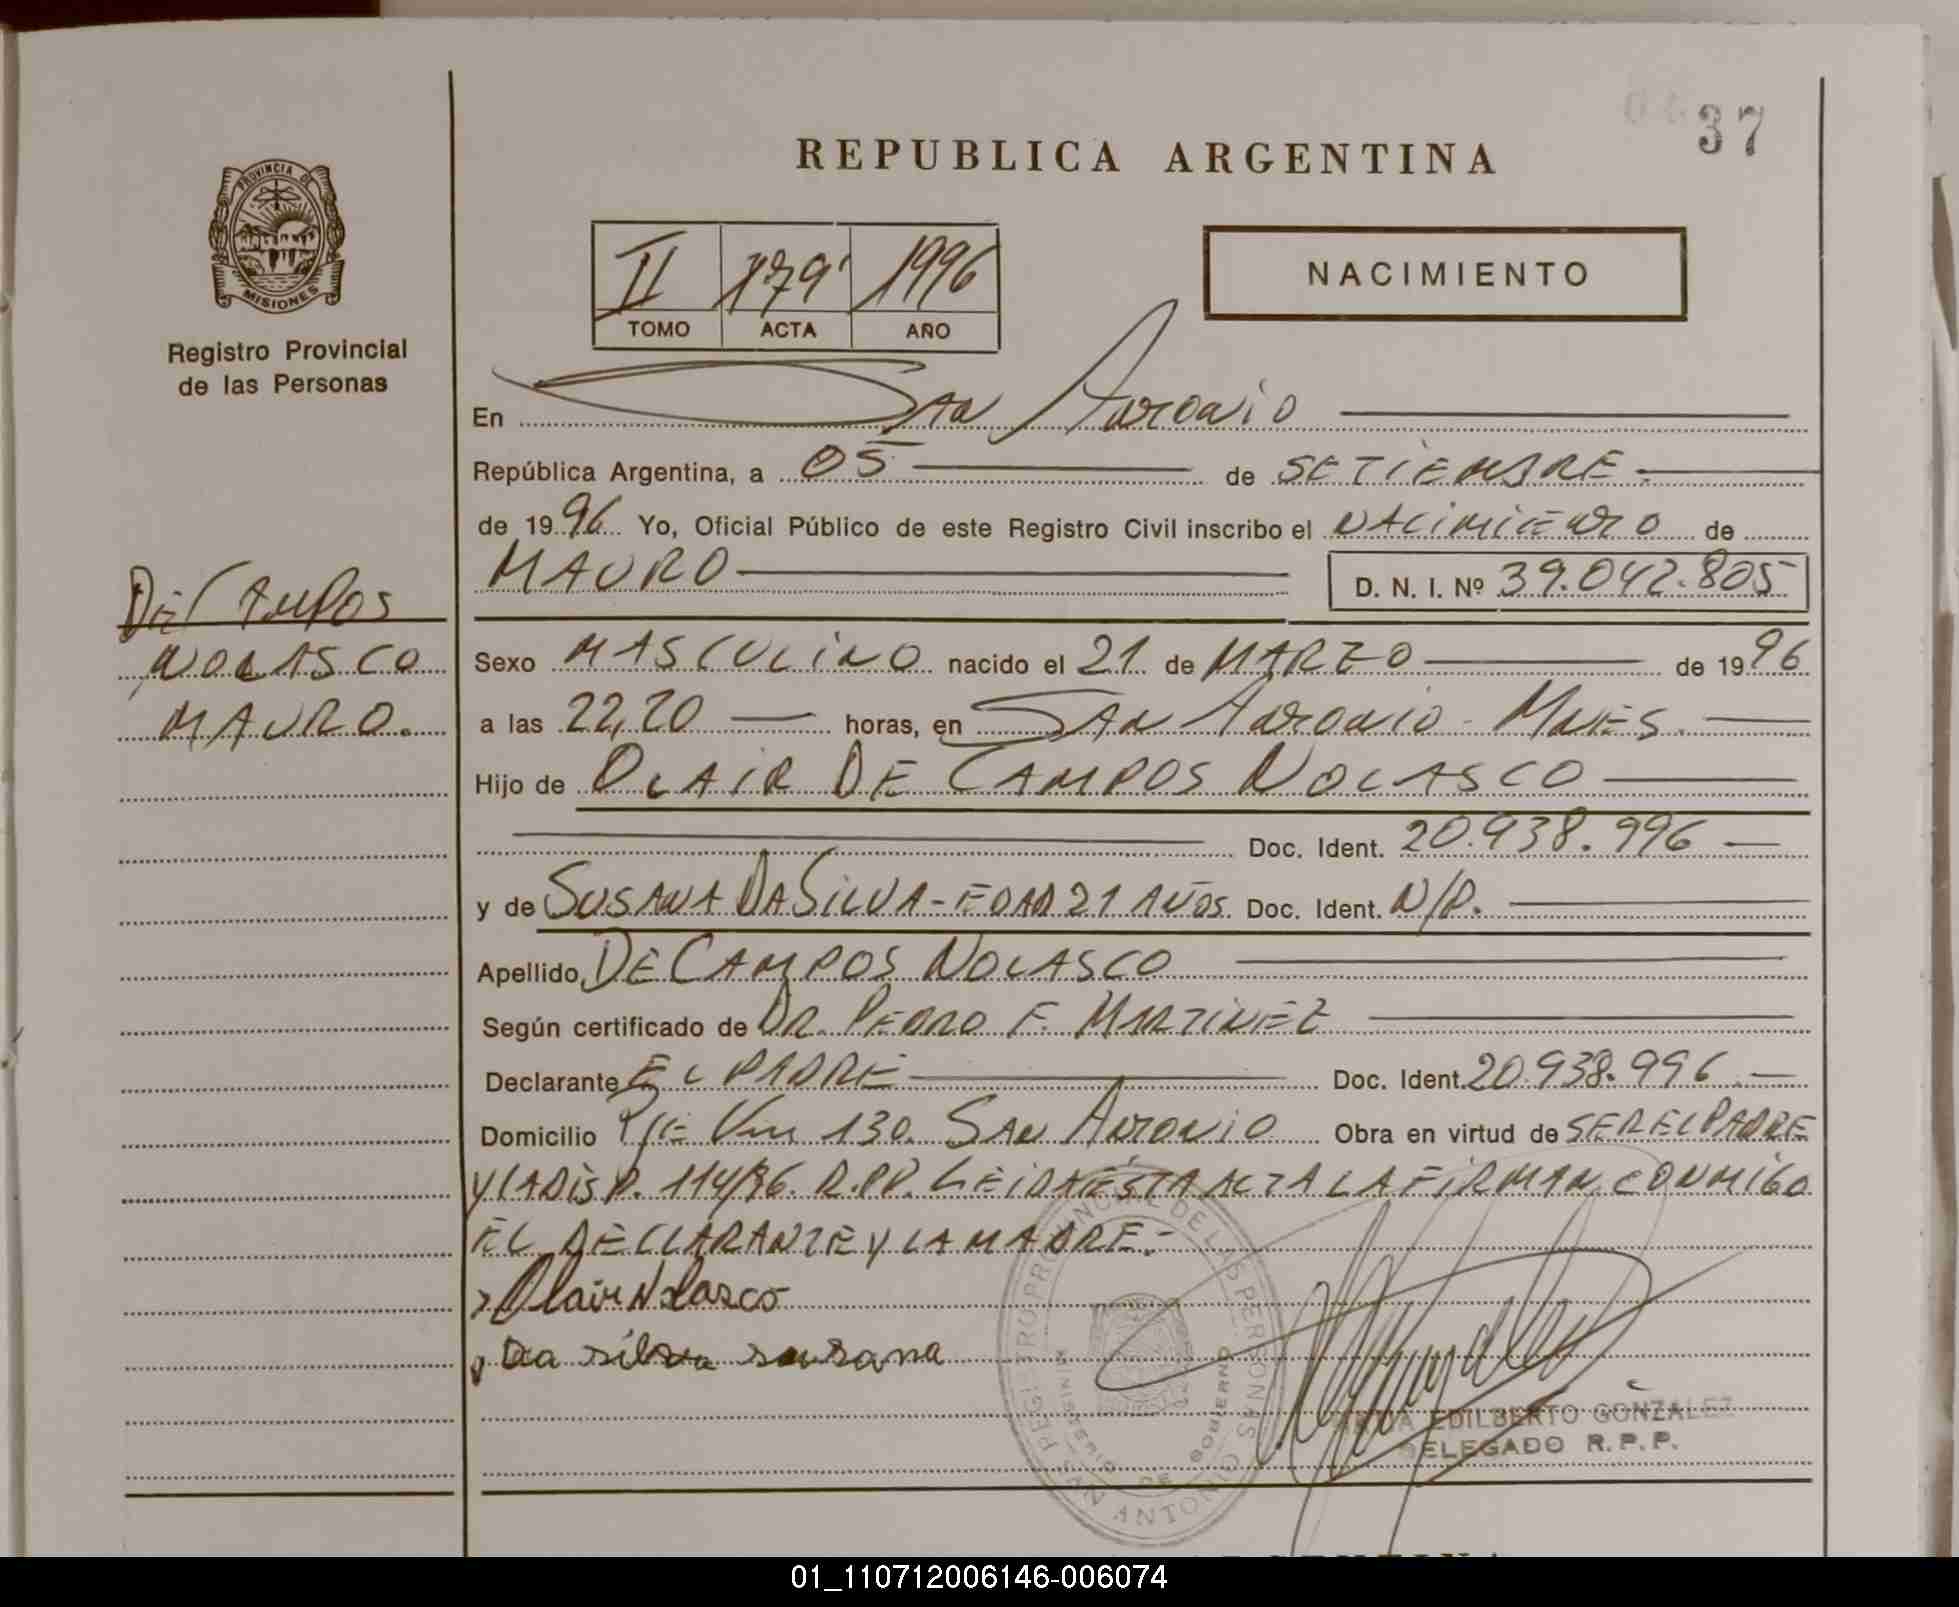 37
REPUBLICA ARGENTINA
PROVINCIA DE MISIONES
Registro Provincial
de las Personas
II 179 1996
TOMO ACTA AÑO
NACIMIENTO
En San Antonio
República Argentina, a 05 de SETIEMBRE.
de 1996 Yo, Oficial Público de este Registro Civil inscribo el NACIMIENTO de
MAURO D. N. I. Nº 39.042.805
DE CAMPOS
NOLASCO
MAURO.
Sexo MASCULINO nacido el 21 de MARZO de 1996
a las 22,20 horas, en SAN ANTONIO - MNES.
Hijo de OLAIR DE CAMPOS NOLASCO
Doc. Ident. 20.938.996
y de SUSANA DA SILVA - EDAD 21 AÑOS. Doc. Ident. N/P.
Apellido DE CAMPOS NOLASCO
Según certificado de DR. PEDRO F. MARTINEZ
Declarante EL PADRE Doc. Ident. 20.938.996
Domicilio 130. SAN ANTONIO Obra en virtud de SER EL PADRE
Y LA DISP. 114/96. R.P.P. LEIDA ESTA ACTA LA FIRMAN CONMIGO
EL DECLARANTE Y LA MADRE.-
Olair Nolasco
Da silva susana
REGISTRO PROVINCIAL DE LAS PERSONAS
MINISTERIO DE GOBIERNO
SAN ANTONIO
EDILBERTO GONZALEZ
DELEGADO R.P.P.
01_110712006146-006074